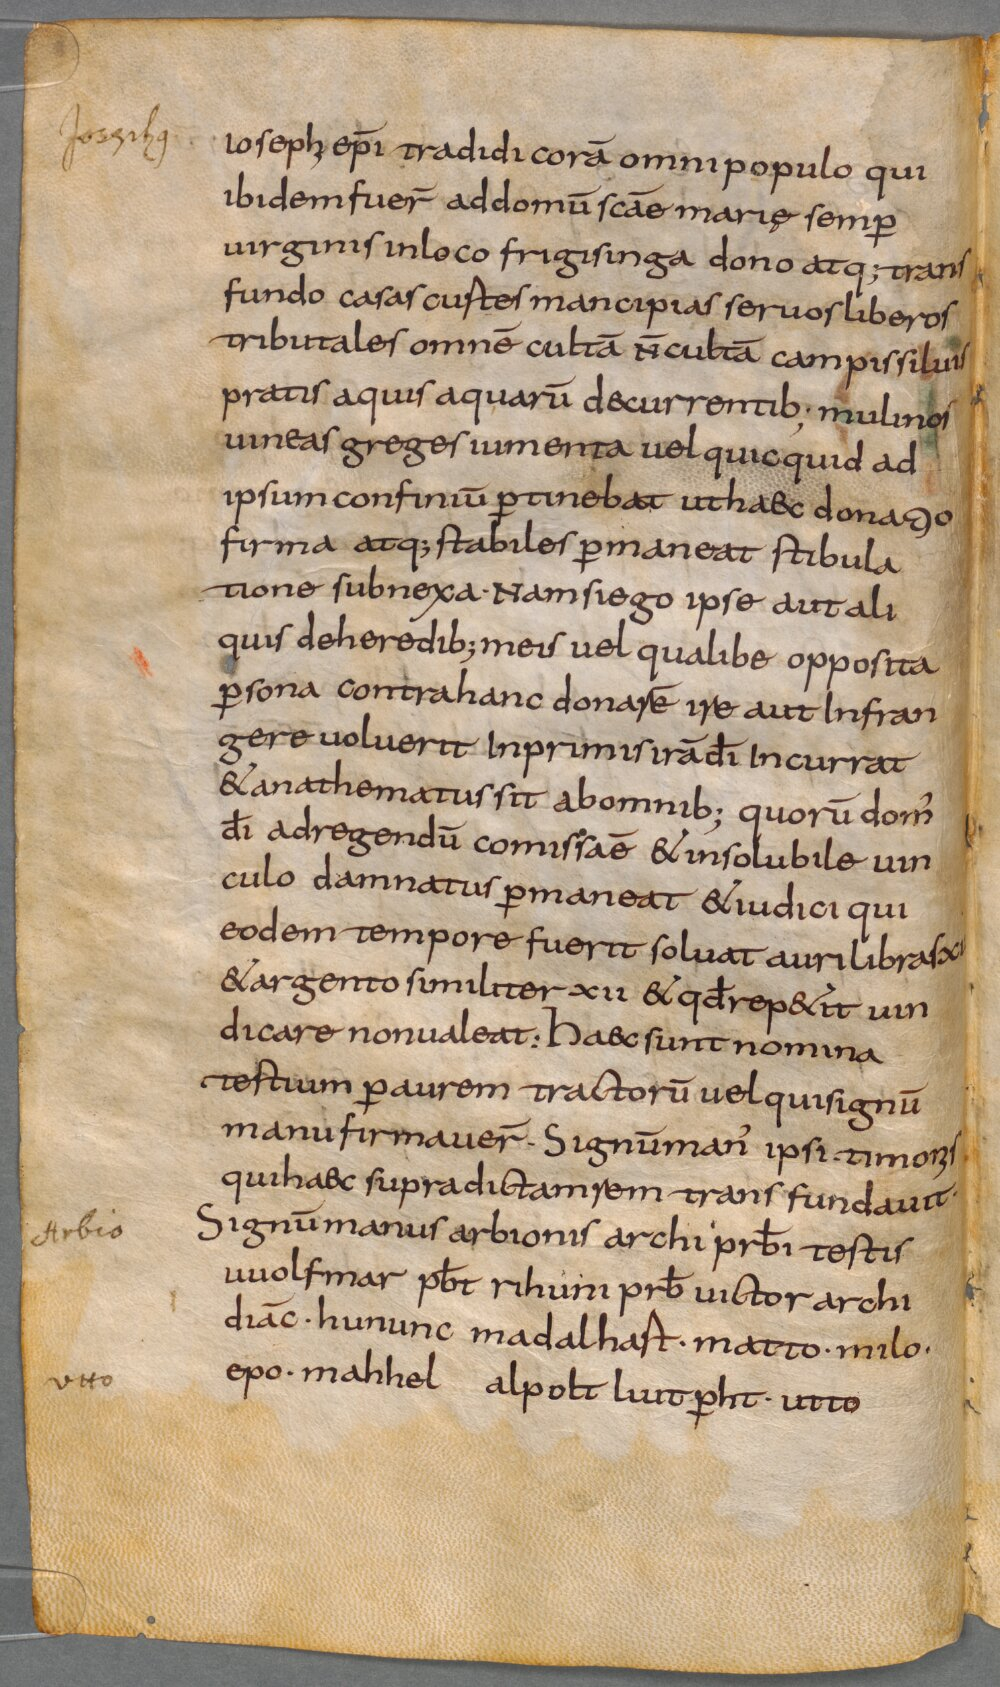 ioseph epī tradidi corā omni populo qui
ibidem fuer̄ ad domū scāe marię semp̱
uirginis in loco frigisinga dono atq; trans
fundo casas custes mancipias seruos liberos
tributales omnē cultā n̄ cultā campis siluis
pratis aquis aquarū decurrentib; mulinos
uineas greges iumenta uel quicquid ad
ipsum confiniū p̱tinebat ut haec donatio
firma atq; stabiles p̱maneat stibula
tione subnexa · Nam si ego ipse aut ali
quis de heredib; meis uel qualibe opposita
p̱sona contra hanc donatē ire aut Infran
gere uoluerit Inprimis irā dī Incurrat
& anathematus sit ab omnib; quorū dom̄
dī ad regendū comissāe & insolubile uin
culo damnatus p̱maneat & iudici qui
eodem tempore fuerit soluat auri libras xii
& argento similiter xii & qd̄ rep&it uin
dicare non ualeat: Haec sunt nomina
testium p̱ aurem tractorū uel qui signū
manu firmauer̄ · Signū man̄ ipsi timonis
qui haec supradictam rem transfundauit ·
Arbio
Signū manus arbionis archi prb̄i testis
uuolfmar pb̄t rihuni prb̄ uictor archi
diāc · hununc madalhast · matto · milo ·
Utto
epo · mahhel alpolt liutp̱ht · utto